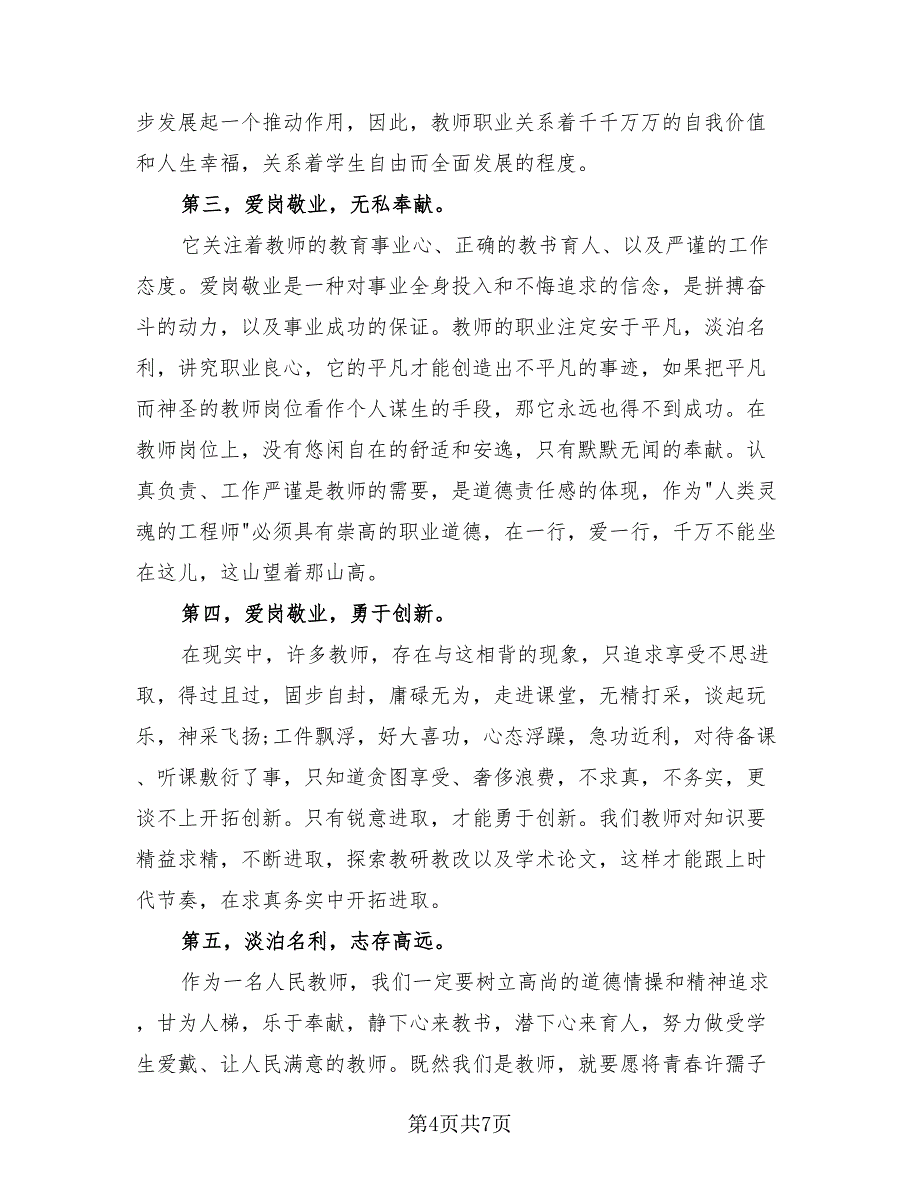 步发展起一个推动作用，因此，教师职业关系着千千万万的自我价值
和人生幸福，关系着学生自由而全面发展的程度。
第三，爱岗敬业，无私奉献。
它关注着教师的教育事业心、正确的教书育人、以及严谨的工作
态度。爱岗敬业是一种对事业全身投入和不悔追求的信念，是拼搏奋
斗的动力，以及事业成功的保证。教师的职业注定安于平凡，淡泊名
利，讲究职业良心，它的平凡才能创造出不平凡的事迹，如果把平凡
而神圣的教师岗位看作个人谋生的手段，那它永远也得不到成功。在
教师岗位上，没有悠闲自在的舒适和安逸，只有默默无闻的奉献。认
真负责、工作严谨是教师的需要，是道德责任感的体现，作为"人类灵
魂的工程师"必须具有崇高的职业道德，在一行，爱一行，千万不能坐
在这儿，这山望着那山高。
第四，爱岗敬业，勇于创新。
在现实中，许多教师，存在与这相背的现象，只追求享受不思进
取，得过且过，固步自封，庸碌无为，走进课堂，无精打采，谈起玩
乐，神采飞扬;工件飘浮，好大喜功，心态浮躁，急功近利，对待备课
、听课敷衍了事，只知道贪图享受、奢侈浪费，不求真，不务实，更
谈不上开拓创新。只有锐意进取，才能勇于创新。我们教师对知识要
精益求精，不断进取，探索教研教改以及学术论文，这样才能跟上时
代节奏，在求真务实中开拓进取。
第五，淡泊名利，志存高远。
作为一名人民教师，我们一定要树立高尚的道德情操和精神追求
，甘为人梯，乐于奉献，静下心来教书，潜下心来育人，努力做受学
生爱戴、让人民满意的教师。既然我们是教师，就要愿将青春许孺子
第4页共7页